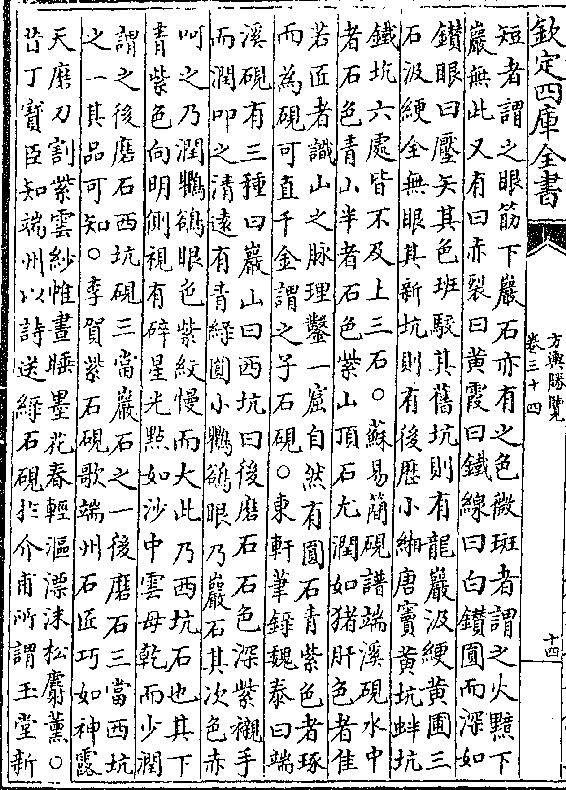 欽定四庫全書
方輿勝覽
卷三十四
十四
短者謂之眼筋下巖石亦有之色微斑者謂之火黯下
巖無此又有曰赤裂曰黄霞曰鐵線曰白鑚圓而深如
鑚眼曰壓矢其色班駁其舊坑則有龍巖汲綆黄圃三
石汲綆全無眼其新坑則有後歷小緗唐竇黄坑蚌坑
鐵坑六處皆不及上三石○蘇易簡硯譜端溪硯水中
者石色青小半者石色紫山頂石尤潤如猪肝色者佳
若匠者識山之脉理鑿一窟自然有圓石青紫色者琢
而為硯可直千金謂之子石硯○東軒筆錄魏泰曰端
溪硯有三種曰巖山曰西坑曰後磨石石色深紫襯手
而潤叩之清逺有青緑圓小鸜鵒眼乃巖石其次色赤
呵之乃潤鸜鵒眼色紫紋慢而大此乃西坑石也其下
青紫色向明側視有碎星光點如沙中雲母乾而少潤
謂之後磨石西坑硯三當巖石之一後磨石三當西坑
之一其品可知○李賀紫石硯歌端州石匠巧如神露
天磨刀割紫雲紗帷晝睡墨花春輕漚漂沫松麝薰○
昔丁寳臣知端州以詩送緑石硯於介甫所謂玉堂新